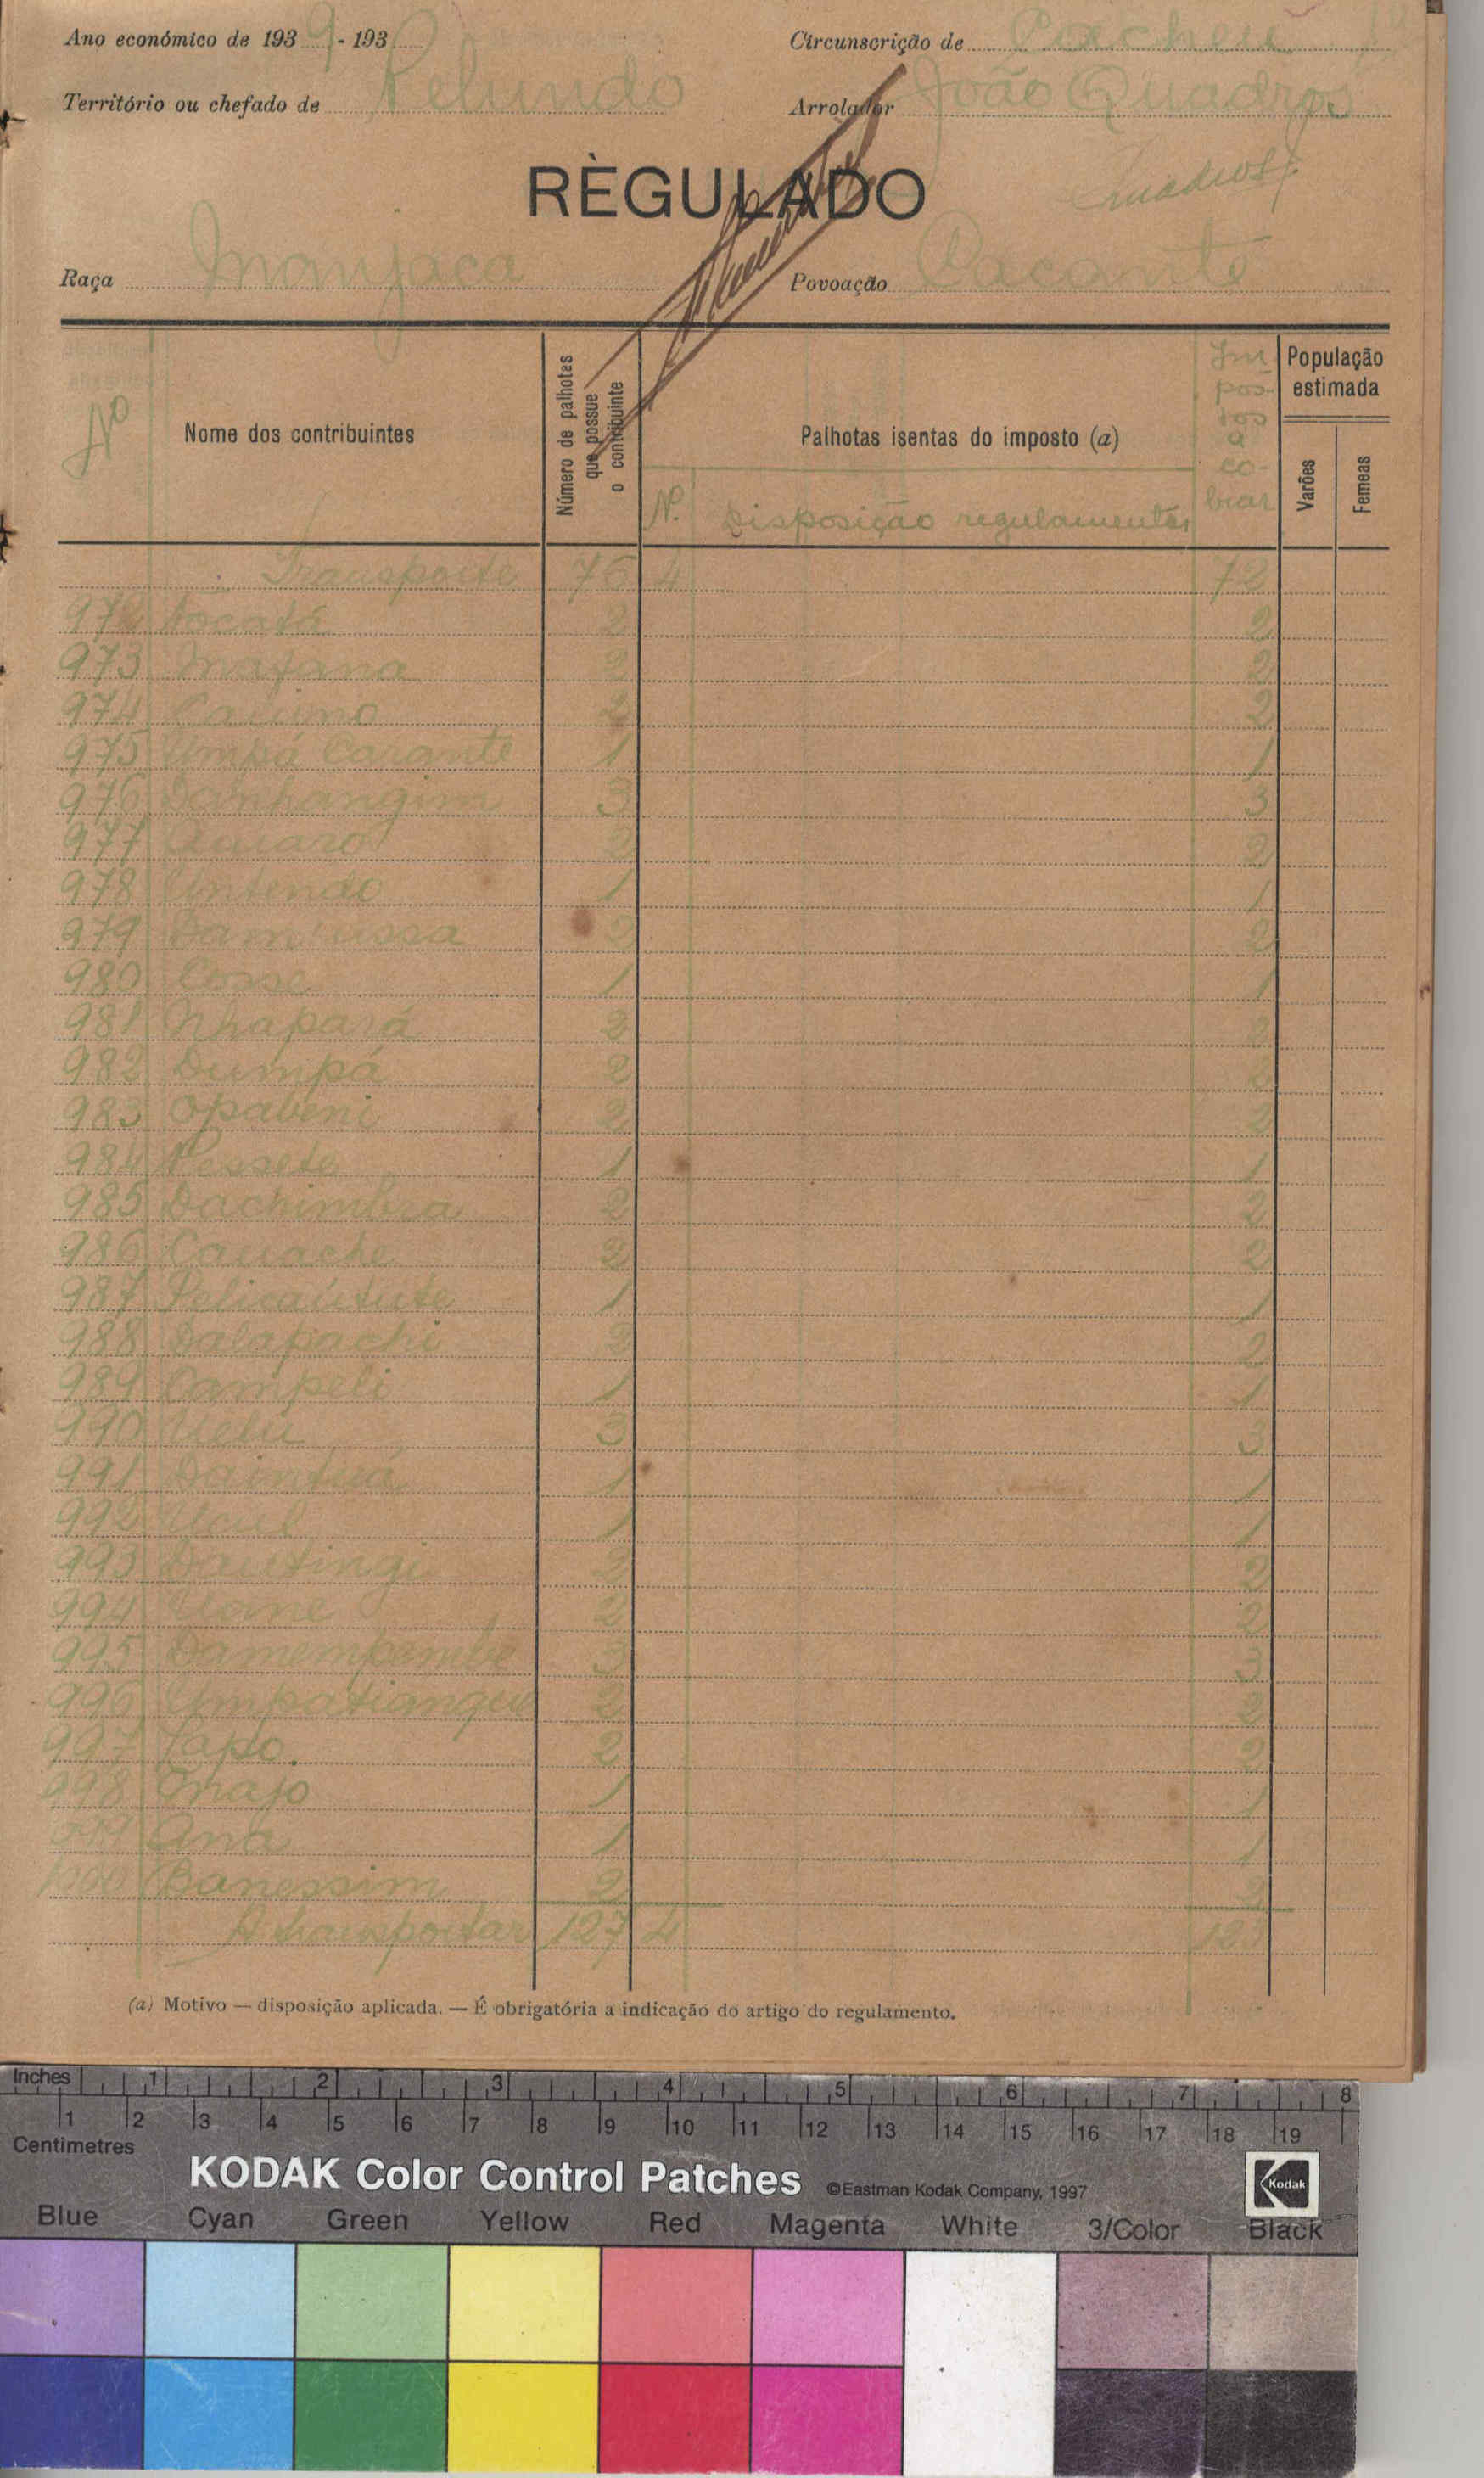 Ano económico de 1939 - 193
Circunscrição de Cacheu
Território ou chefado de Pelundo
Arrolador João Quadros
RÈGULADO
Raça Manjaca
Povoação Cacante
Nº
Nome dos contribuintes
Número de palhotas que possue o contribuinte
Palhotas isentas do imposto (a)
Nº. Disposição regulamentar
Impostos a cobrar
População estimada
Varões
Femeas
Transporte 76 4 72
972 2 2
973 Mafana 2 2
974 2 2
975 Umpá Carante 1 1
976 Danhangim 3 3
977 2 2
978 Untendo 1 1
979 Dam'ussa 2 2
980 Cosse 1 1
981 Nhapará 2 2
982 Dumpá 2 2
983 Opabeni 2 2
984 1 1
985 Dachimbra 2 2
986 Cauache 2 2
987 1 1
988 Dalapachi 2 2
989 Campeli 1 1
990 Uelu 3 3
991 Daintuá 1 1
992 1 1
993 Dautingi 2 2
994 2 2
995 3 3
996 Umpatiangue 2 2
997 2 2
998 Majo 1 1
999 Ana 1 1
1000 Banessim 2 2
A transportar 127 4 123
(a) Motivo — disposição aplicada. — É obrigatória a indicação do artigo do regulamento.
Inches 1 2 3 4 5 6 7 8
1 2 3 4 5 6 7 8 9 10 11 12 13 14 15 16 17 18 19
Centimetres
KODAK Color Control Patches ©Eastman Kodak Company, 1997 Kodak
Blue Cyan Green Yellow Red Magenta White 3/Color Black